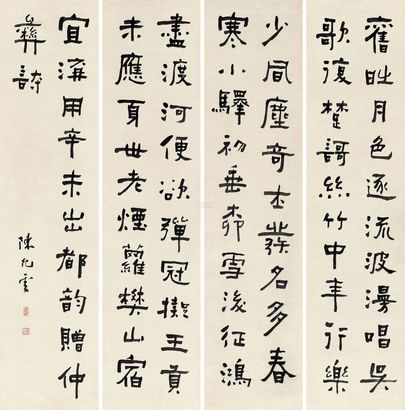 舊時月色逐流波漫唱吳
歌復楚謌絲竹中年行樂
少風塵奇士名多春
寒小驛初垂柳雪後征鴻
盡渡河便欲彈冠擬王貢
未應身世老煙蘿樊山宿
宜海用辛未出都韵贈仲
彝詩
陳紀雲